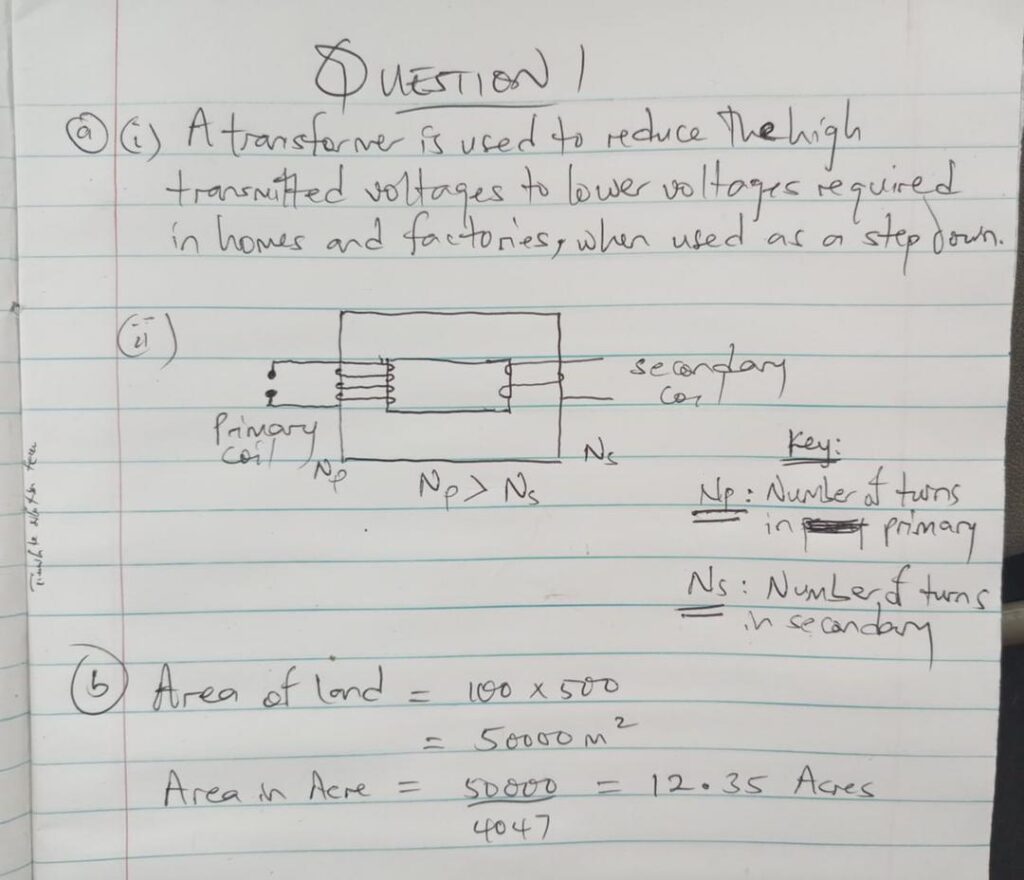 QUESTION 1
(a) (i) A transformer is used to reduce the high
transmitted voltages to lower voltages required
in homes and factories, when used as a step down.
(ii)
secondary
coil
Primary
coil
Np
Ns
Np > Ns
Key:
Np : Number of turns
in primary
Ns : Number of turns
in secondary
(b) Area of land = 100 x 500
= 50000 m²
Area in Acre = 50000 = 12.35 Acres
4047